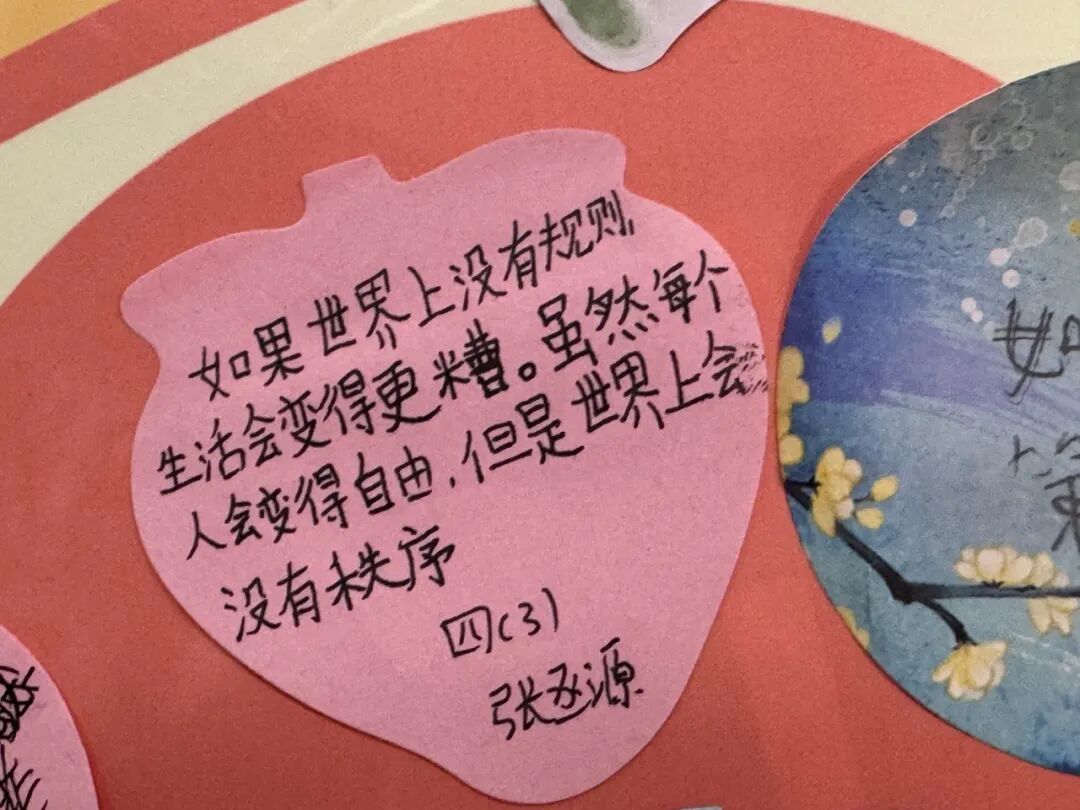 如果世界上没有规则,
生活会变得更糟。虽然每个
人会变得自由,但是世界上会
没有秩序
四(3)
张丞源
如